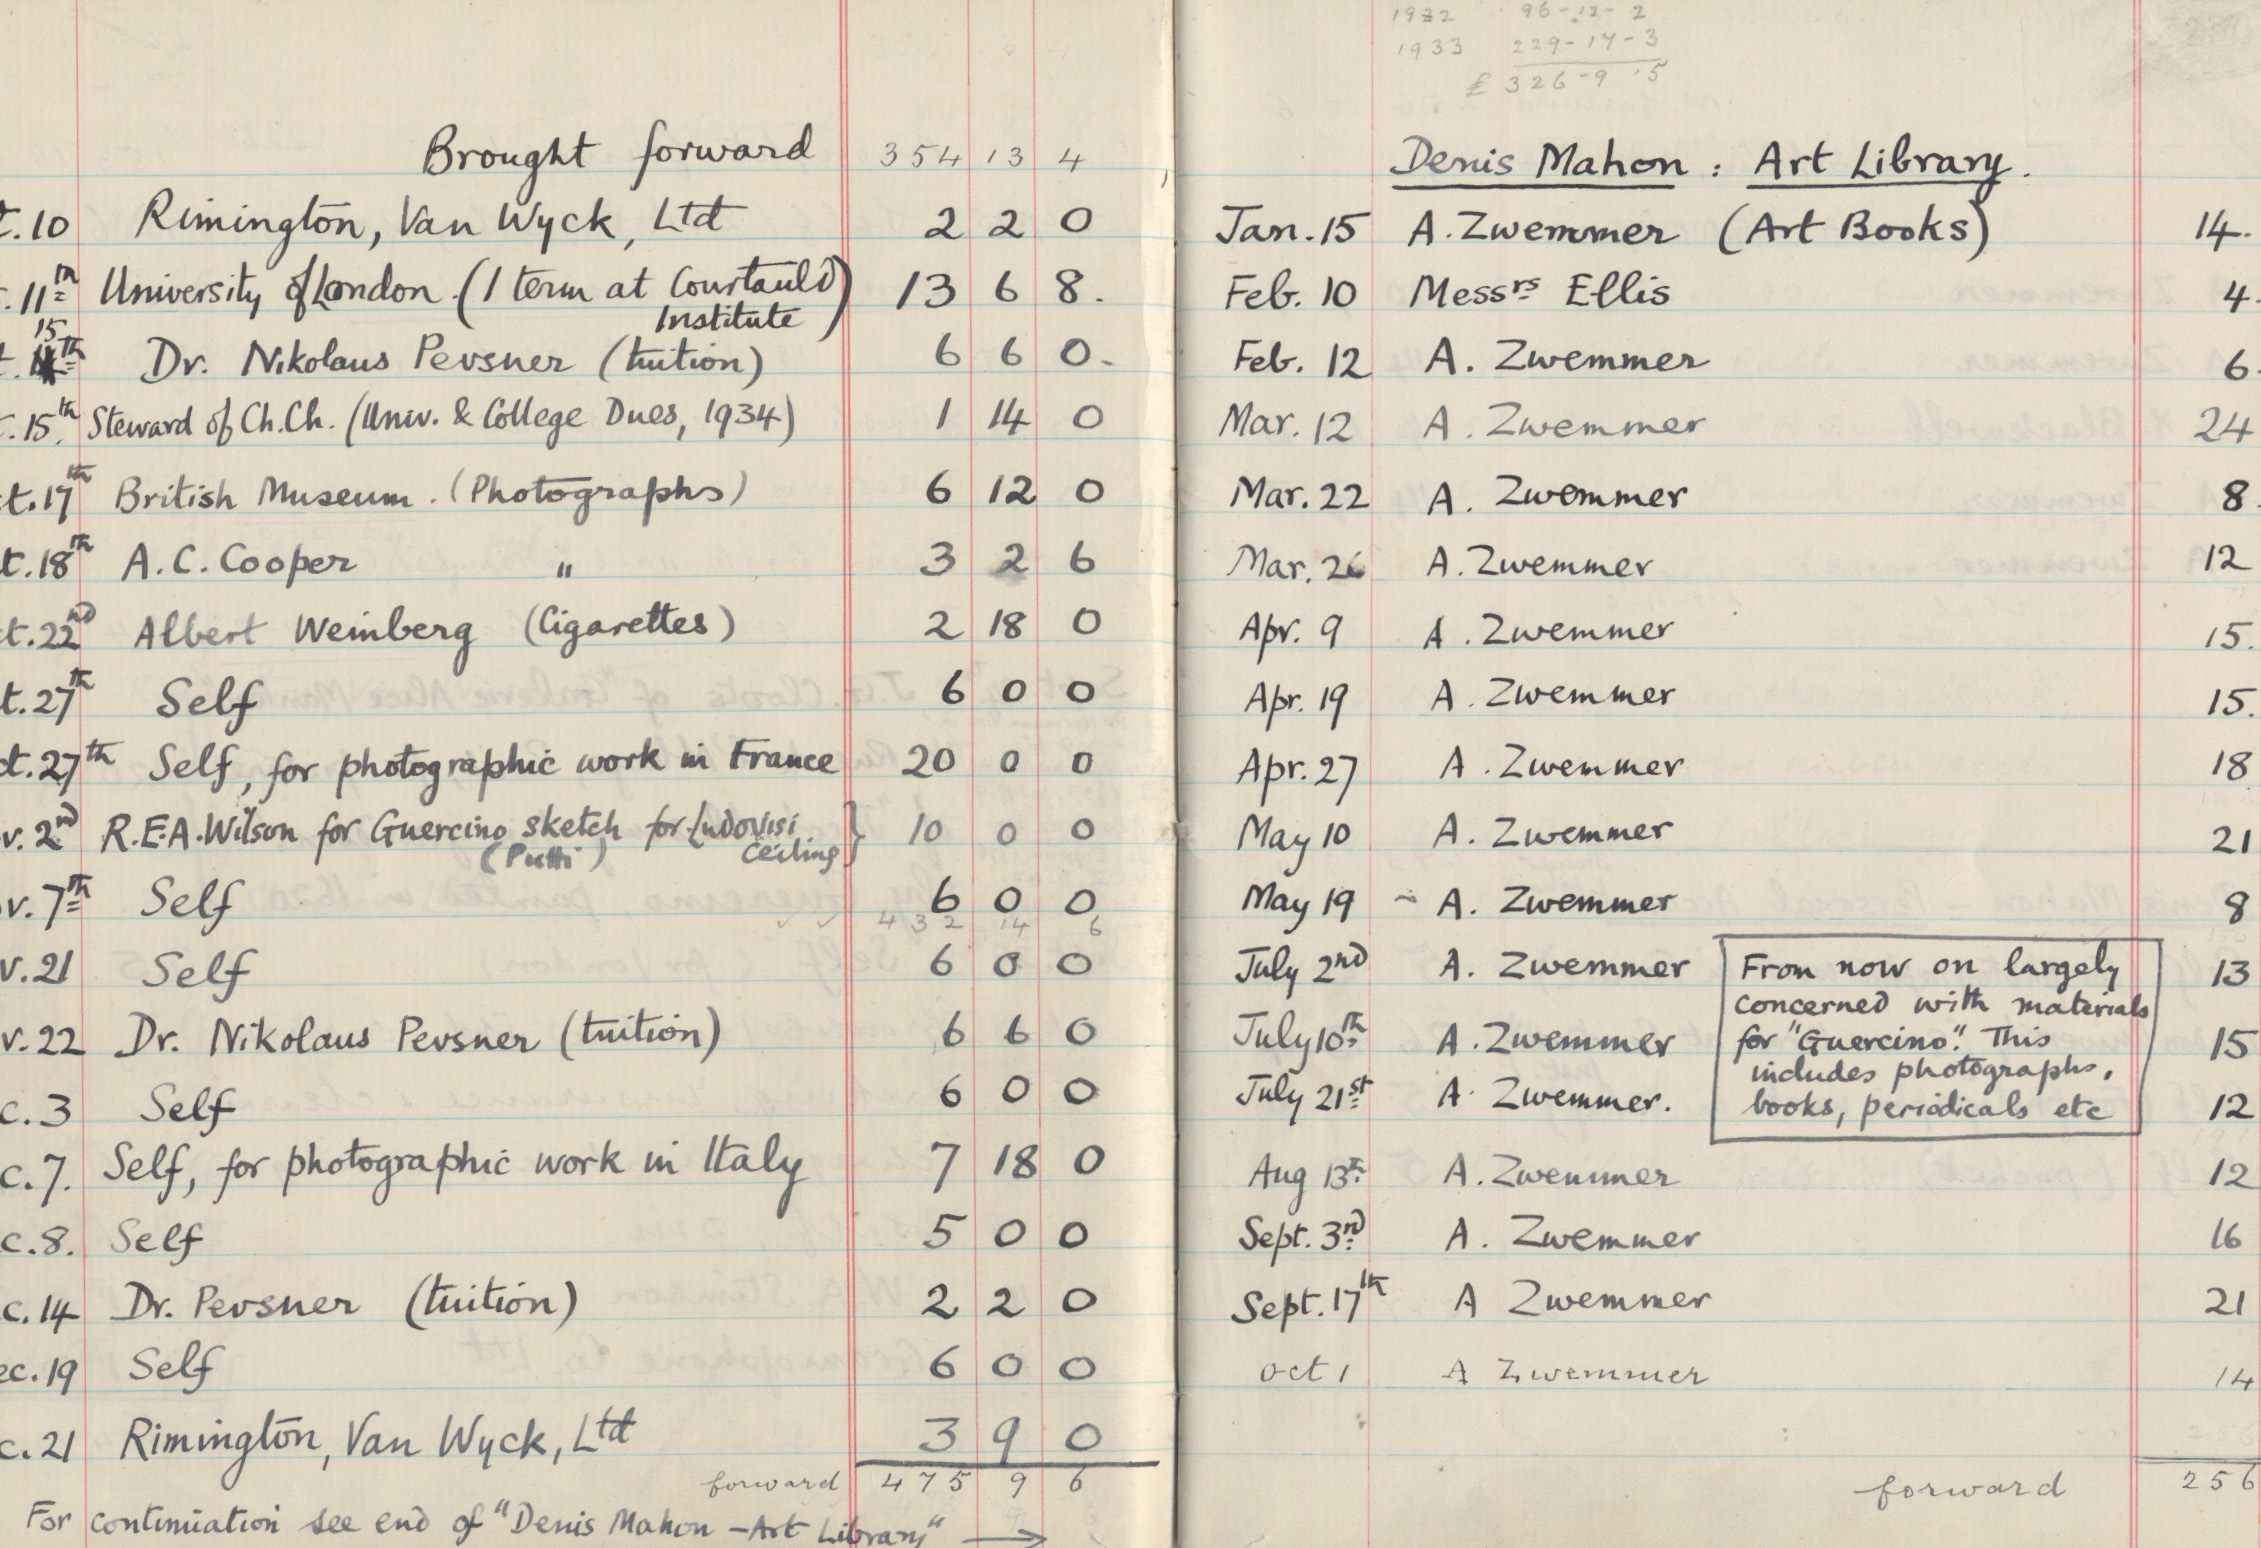 Brought forward 354 13 4
t.10 Rimington, Van Wyck, Ltd 2 2 0
t.11th University of London. (1 term at Courtauld 13 6 8.
Institute)
15
t. th Dr. Nikolaus Pevsner (tuition) 6 6 0-
t.15th. Steward of Ch.Ch. (Univ. & College Dues, 1934) 1 14 0
ct.17th British Museum. (Photographs) 6 12 0
t.18th A.C. Cooper " 3 2 6
ct.22nd Albert Weinberg (Cigarettes) 2 18 0
t.27th Self 6 0 0
ct.27th Self, for photographic work in France 20 0 0
v.2nd R.E.A. Wilson for Guercino sketch for Ludovisi } 10 0 0
(Putti) Ceiling
v.7th Self 6 0 0
432 14 6
v.21 Self 6 0 0
v.22 Dr. Nikolaus Pevsner (tuition) 6 6 0
c.3 Self 6 0 0
c.7. Self, for photographic work in Italy 7 18 0
c.8. Self 5 0 0
c.14 Dr. Pevsner (tuition) 2 2 0
ec.19 Self 6 0 0
c.21 Rimington, Van Wyck, Ltd 3 9 0
forward 475 9 6
For continuation see end of "Denis Mahon - Art Library" →
1932 96-12-2
1933 229-17-3
£326-9-5
Denis Mahon : Art Library.
Jan. 15 A. Zwemmer (Art Books) 14.
Feb. 10 Messrs Ellis 4.
Feb. 12 A. Zwemmer 6.
Mar. 12 A. Zwemmer 24
Mar. 22 A. Zwemmer 8.
Mar. 26 A. Zwemmer 12
Apr. 9 A. Zwemmer 15.
Apr. 19 A. Zwemmer 15.
Apr. 27 A. Zwemmer 18
May 10 A. Zwemmer 21
May 19 - A. Zwemmer 8
July 2nd A. Zwemmer 13
July 10th A. Zwemmer 15
July 21st A. Zwemmer. 12
From now on largely
concerned with materials
for "Guercino". This
includes photographs,
books, periodicals etc
Aug 13th A. Zwemmer 12
Sept. 3rd A. Zwemmer 16
Sept. 17th A Zwemmer 21
Oct 1 A Zwemmer 14
forward 256